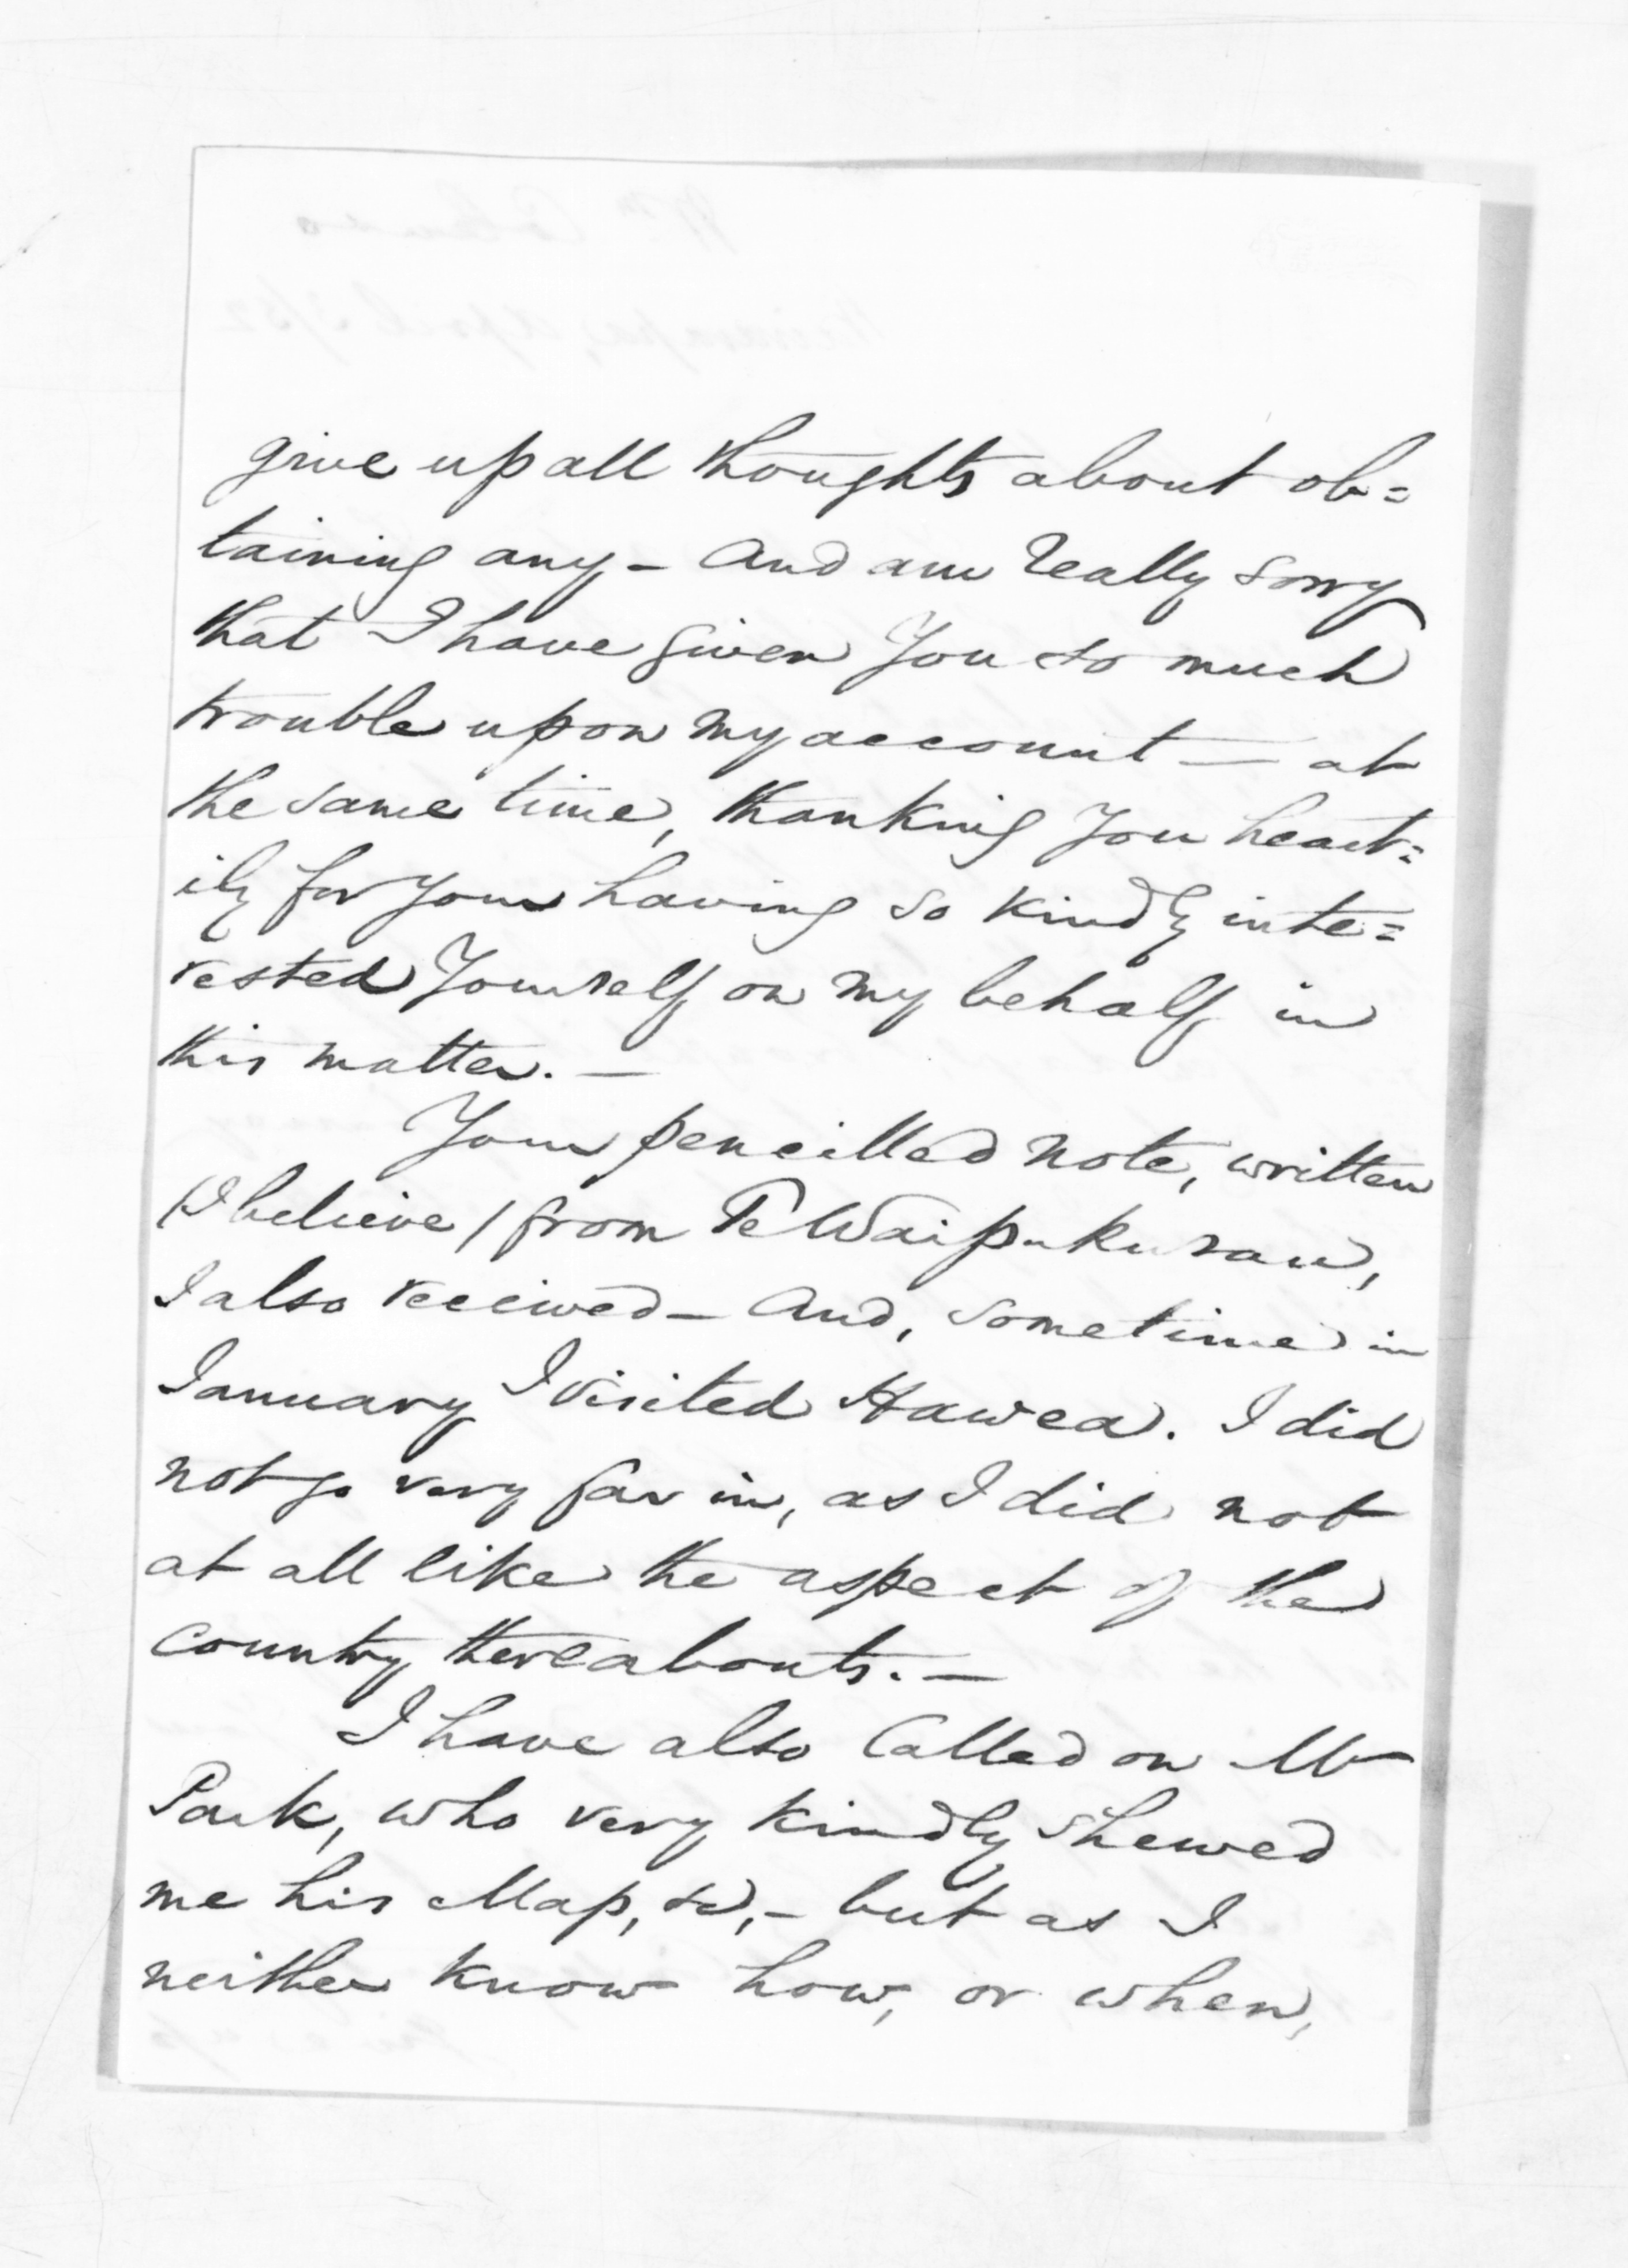 give up all thoughts about ob=
taining any – And am really sorry
that I have given You so much
trouble upon my account — at
the same time, thanking You heart=
ily for Your having so kindly inte=
rested Yourself on my behalf in
this matter. —
Your pencilled note, written
(I believe) from Te Waipukurau,
I also received – And, sometime in
January I visited Hawea. I did
not go very far in, as I did not
at all like the aspect of the
country thereabouts. —
I have also Called on Mr
Park, who very kindly shewed
me his Map, &c, – but as I
neither know how, or when,